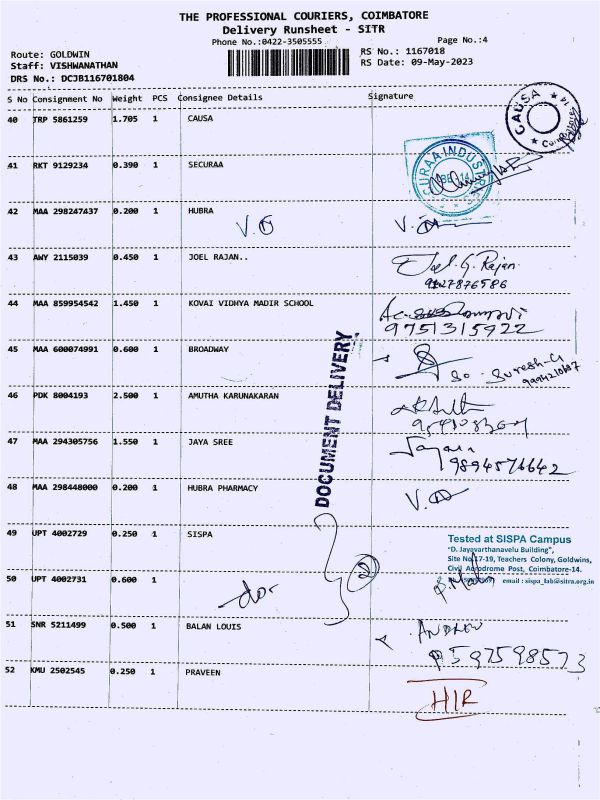 THE PROFESSIONAL COURIERS, COIMBATORE
Delivery Runsheet - SITR
Phone No.:0422-3505555 Page No.:4
Route: GOLDWIN RS No.: 1167018
Staff: VISHWANATHAN RS Date: 09-May-2023
DRS No.: DCJB116701804
S No Consignment No Weight PCS Consignee Details Signature
40 TRP 5861259 1.705 1 CAUSA
CAUSA
41 RKT 9129234 0.390 1 SECURAA
42 MAA 298247437 0.200 1 HUBRA
43 AWY 2115039 0.450 1 JOEL RAJAN..
Joel.G.Rajan
9127876586
44 MAA 859954542 1.450 1 KOVAI VIDHYA MADIR SCHOOL
9751315922
45 MAA 600074991 0.600 1 BROADWAY
So. Suresh.G
46 PDK 8004193 2.500 1 AMUTHA KARUNAKARAN
47 MAA 294305756 1.550 1 JAYA SREE
9894576642
DOCUMENT DELIVERY
48 MAA 298448000 0.200 1 HUBRA PHARMACY
49 UPT 4002729 0.250 1 SISPA
Tested at SISPA Campus
"D. Jayavarthanavelu Building",
Site No.17-19, Teachers Colony, Goldwins,
Civil Aerodrome Post, Coimbatore-14.
email : sispa_lab@sitra.org.in
2
50 UPT 4002731 0.600 1
51 SNR 5211499 0.500 1 BALAN LOUIS
ANDREW
52 KMU 2502545 0.250 1 PRAVEEN
HIR